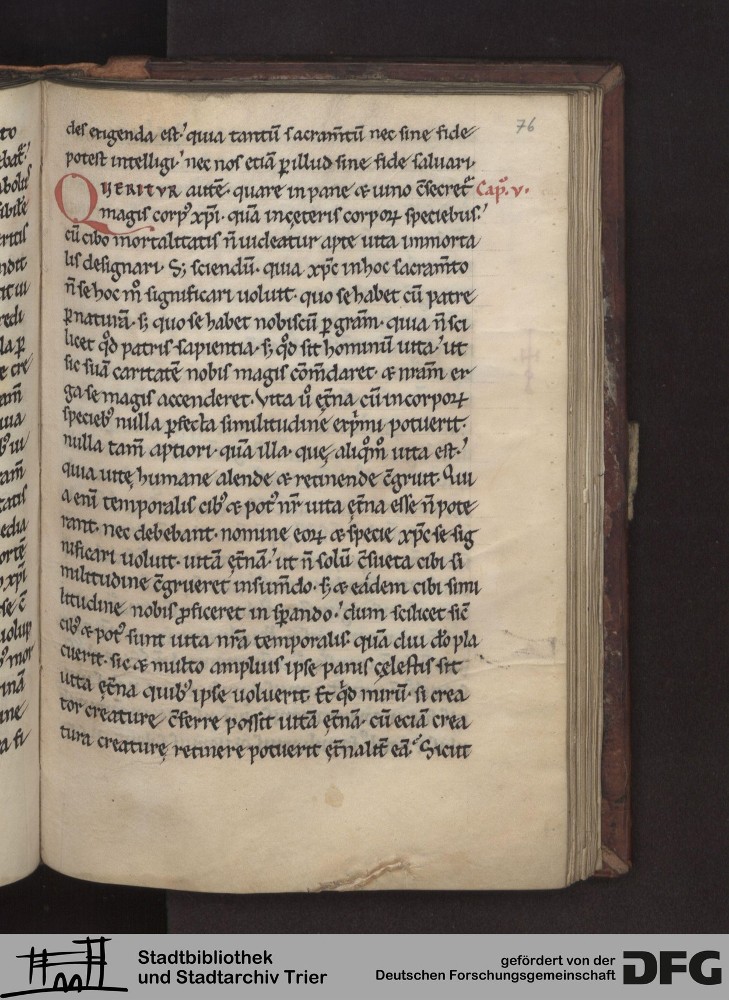 76
des erigenda est. quia tantū sacram̄tū nec sine fide
potest intelligi. nec nos etiā ꝑ illud sine fide saluari.
QUERITVR autē. quare in pane & uino c̄secret̄ Cap̄. v.
magis corpꝰ xp̄i. quā in cęteris corporꝝ speciebus.
cū cibo mortalitatis n̄ uideatur apte uita immorta
lis designari. S; sciendū. quia xp̄c in hoc sacram̄to
n̄ se hoc m̊ significari uoluit. quo se habet cū patre
ꝑ naturā. s; quo se habet nobiscū ꝑ gram̄. quia n̄ sci
licet qd̄ patris sapientia. s; qd̄ sit hominū uita. ut
sic suā caritatē nobis magis com̄daret. & nram̄ er
ga se magis accenderet. Vita ů ęt̄na cū in corporꝝ
speciebꝰ nulla ꝑfecta similitudine exp̄mi potuerit.
nulla tam̄ aptiori. quā illa. quę aliqm̊ uita est.
quia uitę humane alende & retinende c̄gruit. Qui
a eni temporalis cibꝰ & potꝰ nr̄ uita ęt̄na esse n̄ pote
rant. nec debebant. nomine eorꝝ & specie xp̄c se sig
nificari uoluit. uitā ęt̄nā. ut n̄ solū c̄sueta cibi si
militudine c̄grueret in sum̄do. s; & eadem cibi simi
litudine nobis ꝓficeret in sp̄ando. dum scilicet sic̄
cibꝰ & potꝰ sunt uita nrā temporalis. quā diu dō pla
cuerit. sic & multo amplius ipse panis cęlestis sit
uita ęt̄na quibꝰ ipse uoluerit. Et qd̄ mirū. si crea
tor creature c̄ferre possit uitā ęt̄nā. cū eciā crea
tura creaturę retinere potuerit ęt̄nalit̄ eā. Sicut
Stadtbibliothek
und Stadtarchiv Trier
gefördert von der
Deutschen Forschungsgemeinschaft
DFG